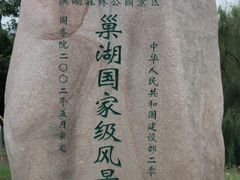 滨湖森林公园景区
中华人民共和国建设部二零
巢湖国家级风景
国务院二〇〇二年五月审定